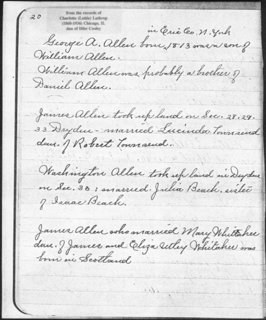 20
From the records of
Charlotte (Leslie) Lathrop
Chicago, IL
dau of
in Erie Co. N. York
George A. Allen born 1813 was a son of
William Allen.
William Allen was probably a brother of
Daniel Allen.
James Allen took up land in Sec. 28.29.
33 Dryden - married Lucinda Townsend
dau. of Robert Townsend.
Washington Allen took up land in Dryden
in Sec 36; married Julia Beach, sister
of Isaac Beach.
James Allen who married Mary Whitaker
dau. of James and Eliza Utley Whitaker was
born in Scotland